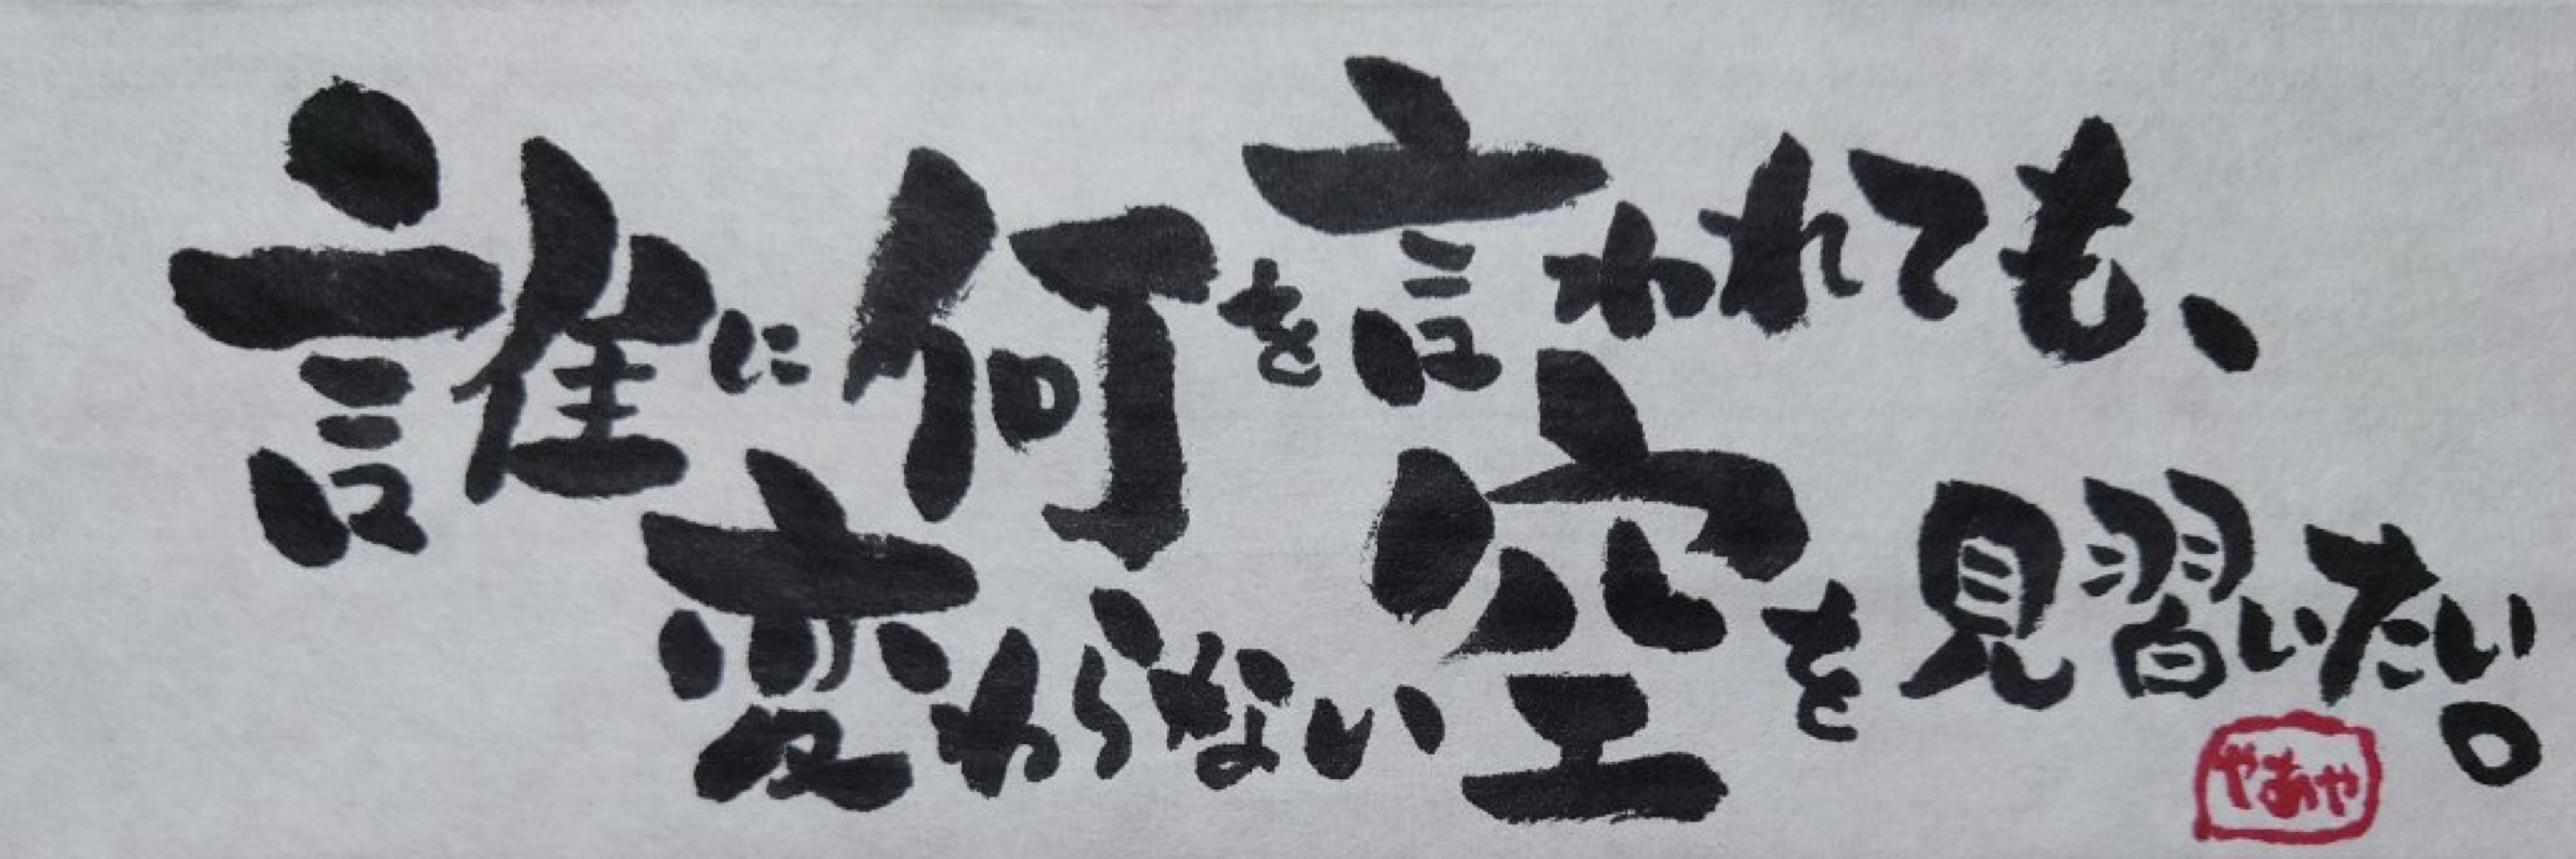 誰に何を言われても、
変わらない空を見習いたい。
やあや